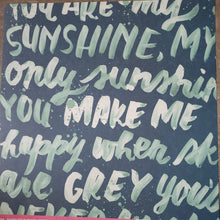 YOU ARE my
SUNSHINE, MY
only sunshin
YOU MAKE ME
happy when sk
are GREY you'
NEVER